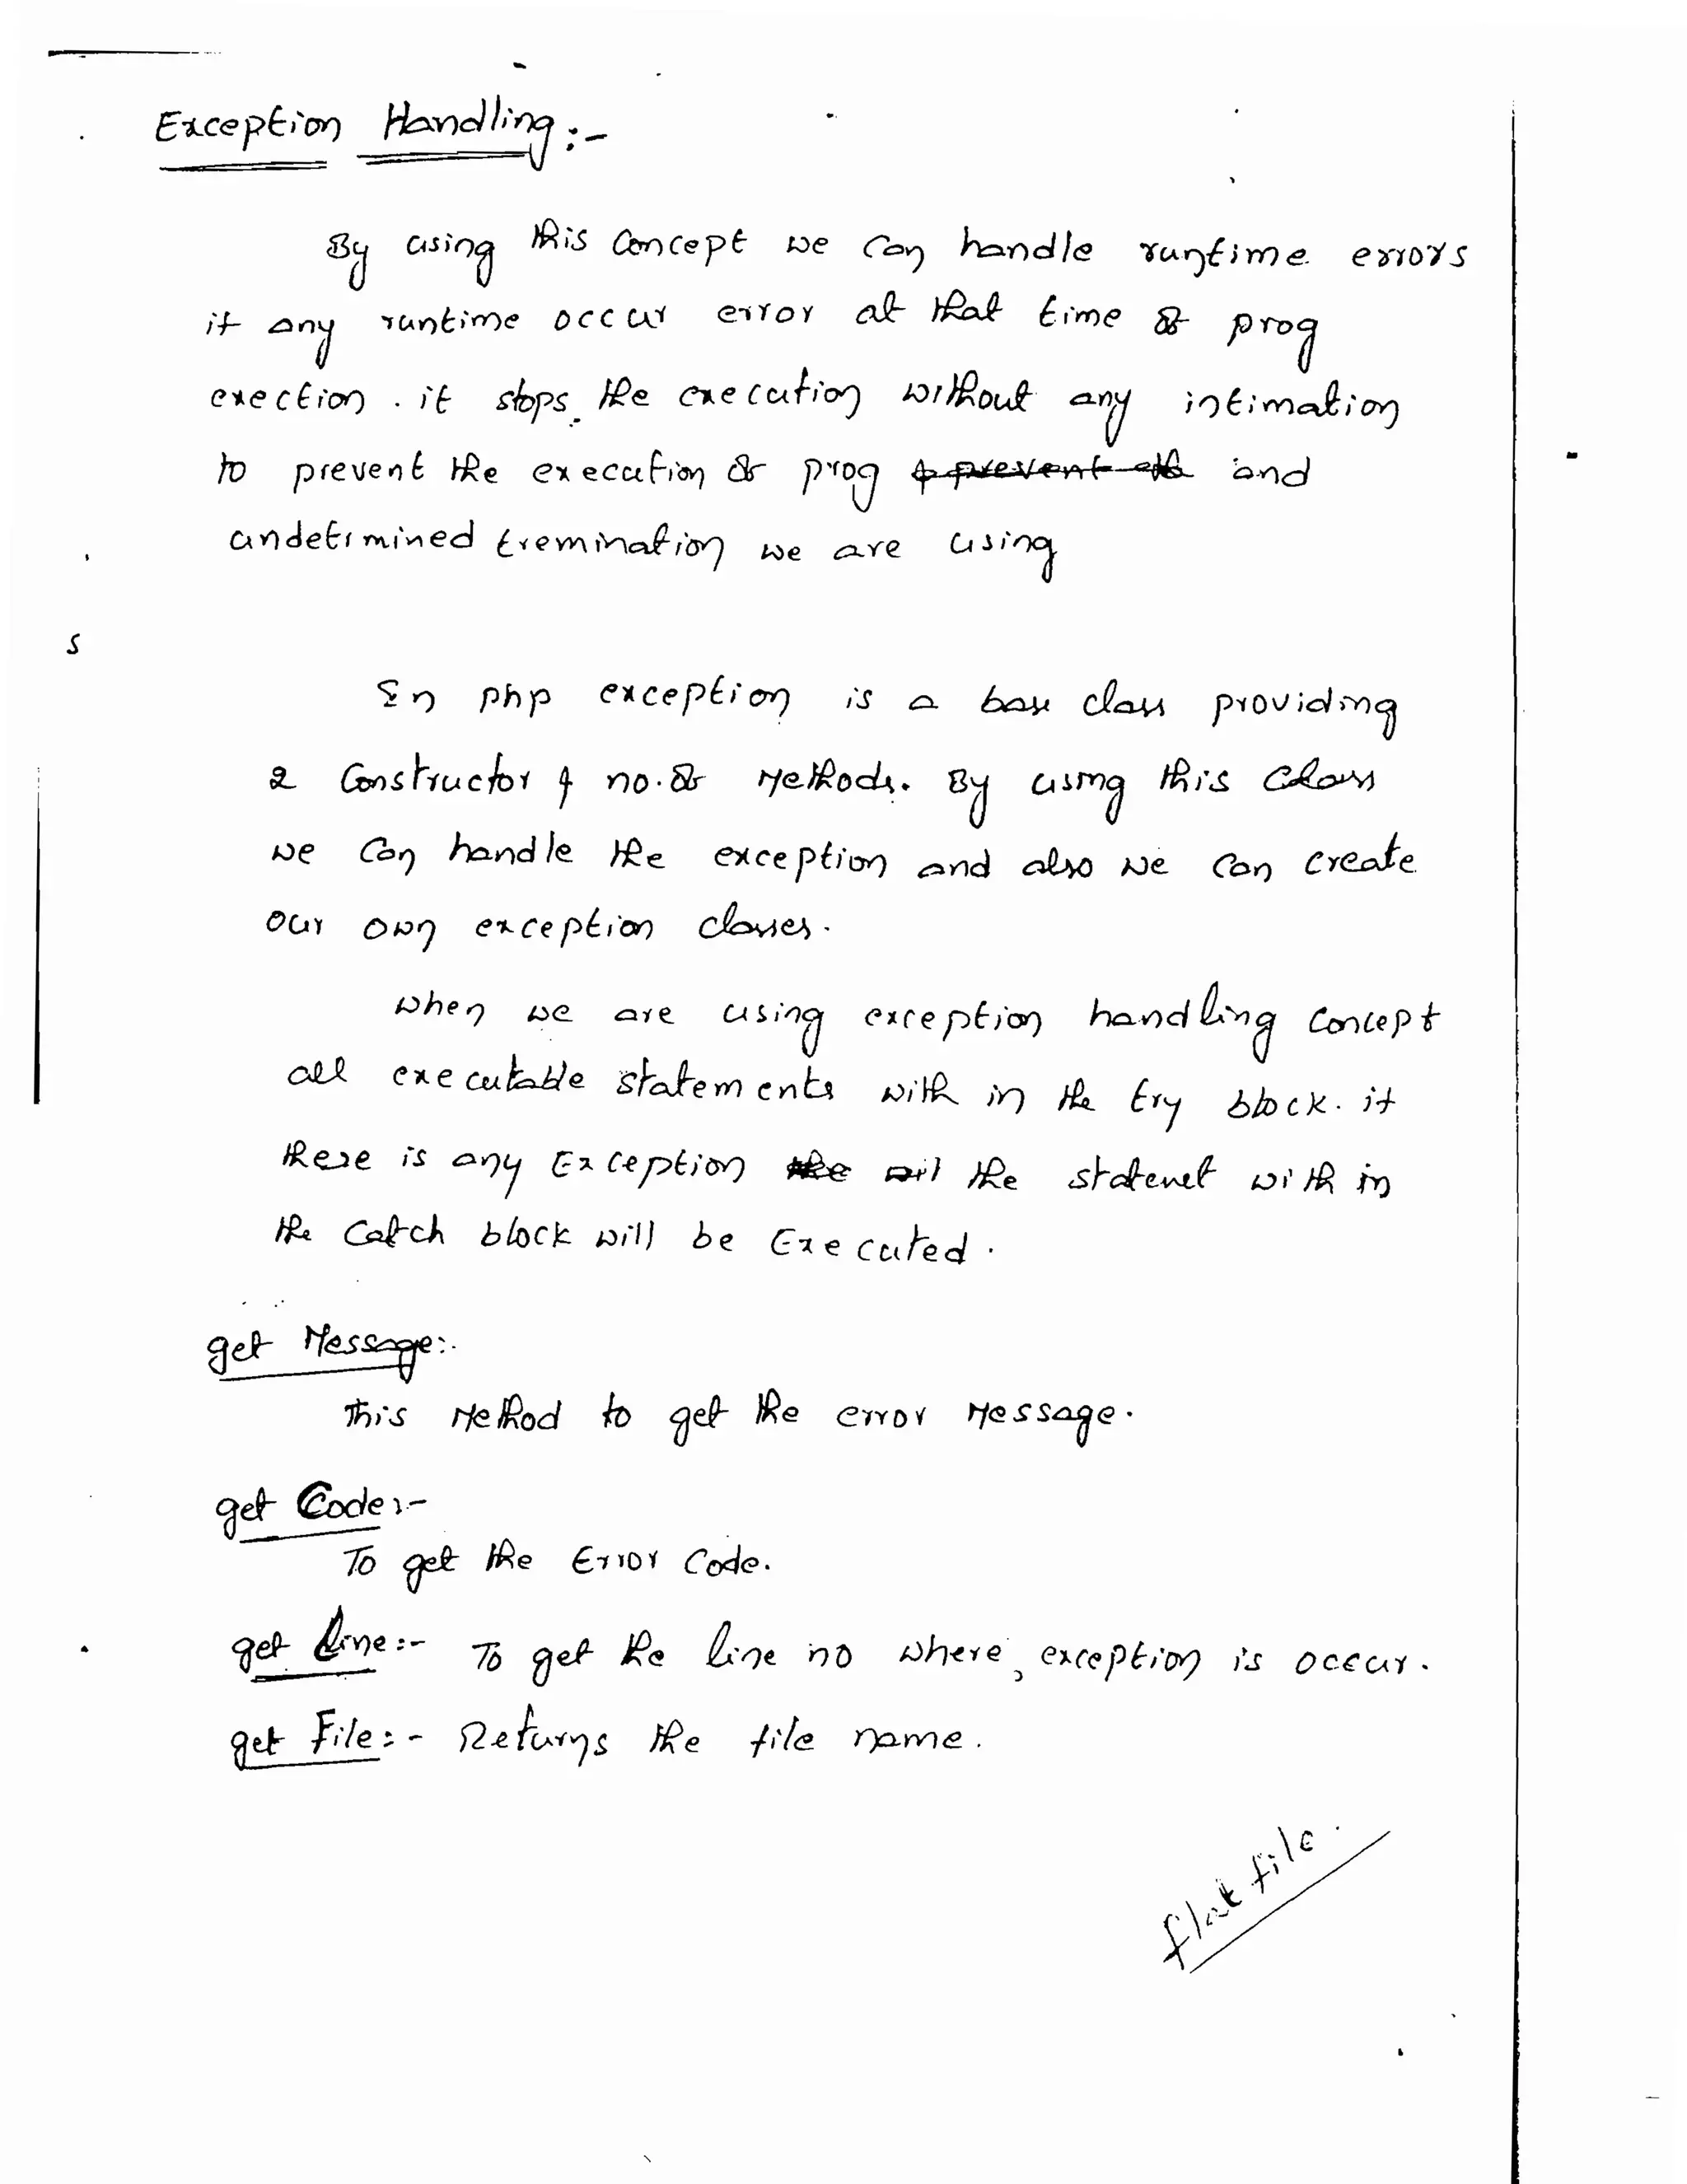 Exception Handling :-
By using this Concept we can handle runtime errors
if any runtime occur error at that time of prog
exection . it stops the execution without any intimation
to prevent the execution of prog and
undetrmined tremination we are using
s
In php exception is a base class providing
2 Constructor & no. of Methods. By using this Class
we Can handle the exception and also we Can create
our own exception classes.
when we are using exception handling Concept
all executable statements with in the try block. if
there is any Exception the statemet with in
the Catch block will be Executed .
get Message:-
This Method to get the error Message.
get Code :-
To get the Error Code.
get Line :- To get the line no where, exception is occur .
get File :- Returns the file name .
flat file .